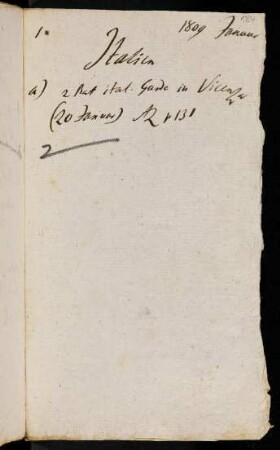 1. 1809 Januar
Italien
a) 2 Bat ital. Garde in Vicenza
(20 Januar) AZ p 131
2